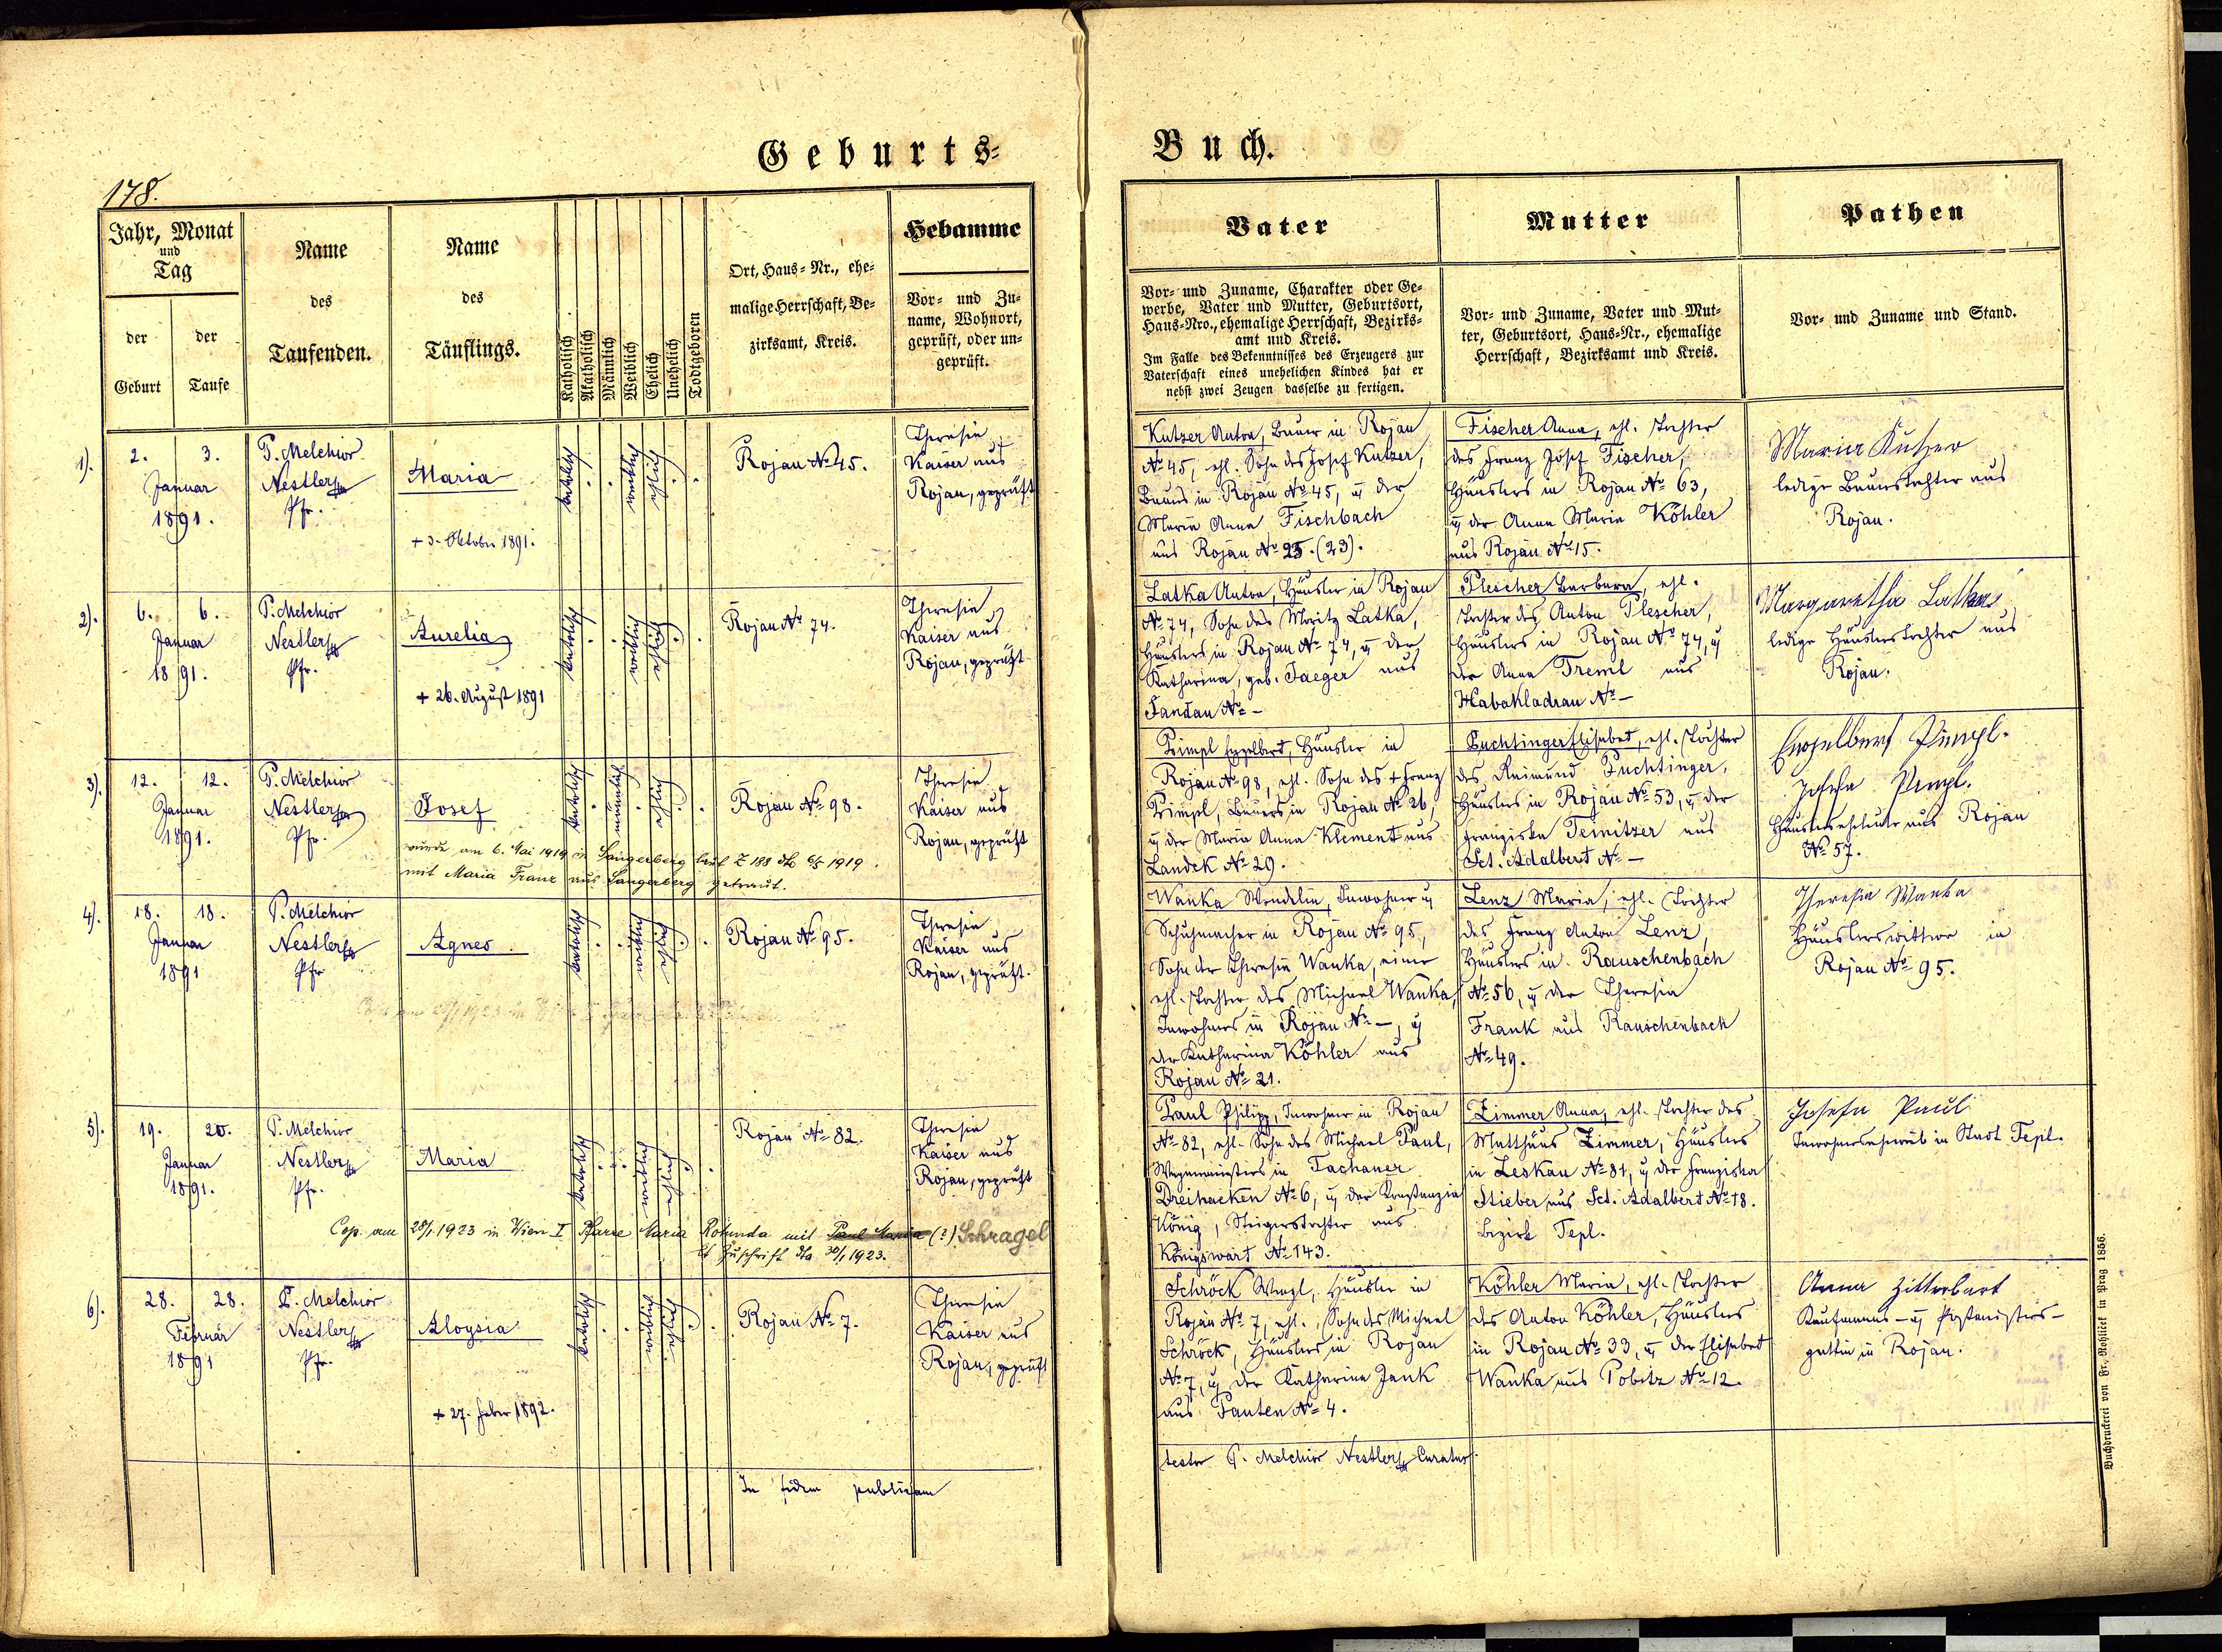 Geburts-
Buch.
178.
Jahr, Monat
und
Tag
der
Geburt
der
Taufe
Name
des
Taufenden.
Name
des
Täuflings.
Katholisch
Akatholisch
Männlich
Weiblich
Ehelich
Unehelich
Todtgeboren
Ort, Haus-Nr., ehe-
malige Herrschaft, Be-
zirksamt, Kreis.
Hebamme
Vor- und Zu-
name, Wohnort,
geprüft, oder un-
geprüft.
Vater
Vor- und Zuname, Charakter oder Ge-
werbe, Vater und Mutter, Geburtsort,
Haus-Nro., ehemalige Herrschaft, Bezirks-
amt und Kreis.
Im Falle des Bekenntnisses des Erzeugers zur
Vaterschaft eines unehelichen Kindes hat er
nebst zwei Zeugen dasselbe zu fertigen.
Mutter
Vor- und Zuname, Vater und Mut-
ter, Geburtsort, Haus-Nr., ehemalige
Herrschaft, Bezirksamt und Kreis.
Pathen
Vor- und Zuname und Stand.
1).
2. 3.
Januar
1891.
P. Melchior
Nestler
Pfr.
Maria
+ 3. Oktober 1891.
katholisch
weiblich
ehelich
Rojau No 45.
Theresia
Kaiser aus
Rojau, geprüft
Kutzer Anton, Bauer in Rojau
No 45, ehl. Sohn des Josef Kutzer,
Bauers in Rojau No 45, u der
Maria Anna Fischbach
aus Rojau No 25. (23).
Fischer Anna, ehl. Tochter
des Franz Josef Fischer,
Häuslers in Rojau No 63,
u der Anna Maria Köhler
aus Rojau No 15.
Maria Kutzer
ledige Bauerstochter aus
Rojau.
2).
6. 6.
Januar
1891.
P. Melchior
Nestler
Pfr.
Aurelia
+ 26. August 1891
katholisch
weiblich
ehelich
Rojau No 74.
Theresia
Kaiser aus
Rojau, geprüft.
Latka Anton, Häusler in Rojau
No 74, Sohn des Moritz Latka,
Häuslers in Rojau No 74, u der
Katharina, geb. Jaeger aus
Sandau No -
Plescher Barbara, ehl.
Tochter des Anton Plescher,
Häuslers in Rojau No 74, u
der Anna Treml aus
Habakladrau No -
Margaretha Latka
ledige Häuslerstochter aus
Rojau.
3).
12. 12.
Januar
1891.
P. Melchior
Nestler
Pfr.
Josef
wurde am 6. Mai 1919 in Sangerberg laut Z 188 dto 6/5 1919.
mit Maria Franz aus Sangerberg getraut.
katholisch
männlich
ehelich
Rojau No 98.
Theresia
Kaiser aus
Rojau, geprüft
Pimpl Engelbert, Häusler in
Rojau No 98, ehl. Sohn des + Franz
Pimpl, Bauers in Rojau No 26,
u der Maria Anna Klement aus
Landek No 29.
Puchtinger Elisabet, ehl. Tochter
des Raimund Puchtinger,
Häuslers in Rojau No 53, u der
Franziska Teinitzer aus
Sct. Adalbert No -
Engelbert Pimpl.
Josefa Pimpl.
Häuslerseheleute aus Rojau
No 57.
4).
18. 18.
Januar
1891
P. Melchior
Nestler
Pfr
Agnes.
katholisch
weiblich
ehelich
Rojau No 95.
Theresia
Kaiser aus
Rojau, geprüft.
Wanka Wendelin, Inwohner u
Schuhmacher in Rojau No 95,
Sohn der Theresia Wanka, einer
ehl. Tochter des Michael Wanka,
Inwohners in Rojau No -, u
der Katharina Köhler aus
Rojau No 21.
Lenz Maria, ehl. Tochter
des Franz Anton Lenz,
Häuslers in Rauschenbach
No 56, u der Theresia
Frank aus Rauschenbach
No 49.
Theresia Wanka
Häuslerswittwe in
Rojau No 95.
5).
19. 20.
Januar
1891.
P. Melchior
Nestler
Pfr.
Maria
katholisch
weiblich
ehelich
Rojau No 82.
Theresia
Kaiser aus
Rojau, geprüft
Cop. am 28/1 1923 in Wien I Pfarre Maria Rotunda mit Paul Maria (?) Schragel
lt Zuschrift dto 30/1 1923.
Paul Philipp, Inwohner in Rojau
No 82, ehl. Sohn des Michael Paul,
Wegeinräumers in Tachauer
Dreihacken No 6, u der Konstanzia
König, Steigerstochter aus
Königswart No 143.
Zimmer Anna, ehl. Tochter des
Matthäus Zimmer, Häuslers
in Leskau No 81, u der Franziska
Stieber aus Sct. Adalbert No 18.
Bezirk Tepl.
Josefa Paul
Inwohnerseheweib in Stadt Tepl.
6).
28. 28.
Februar
1891
P. Melchior
Nestler
Pfr.
Aloysia
+ 27. Feber 1892.
katholisch
weiblich
ehelich
Rojau No 7.
Theresia
Kaiser aus
Rojau, geprüft
Schröck Wenzl, Häusler in
Rojau No 7, ehl. Sohn des Michael
Schröck, Häuslers in Rojau
No 7, u der Katharina Jank
aus Pauten No 4.
Köhler Maria, ehl. Tochter
des Anton Köhler, Häuslers
in Rojau No 33, u der Elisabet
Wanka aus Pobitz No 12.
Anna Zitterbart
Kaufmanns- u Postmeisters-
gattin in Rojau.
In fidem publicam
testor P. Melchior Nestler Curatus.
Buchdruckerei von Fr. Rohlicek in Prag 1856.